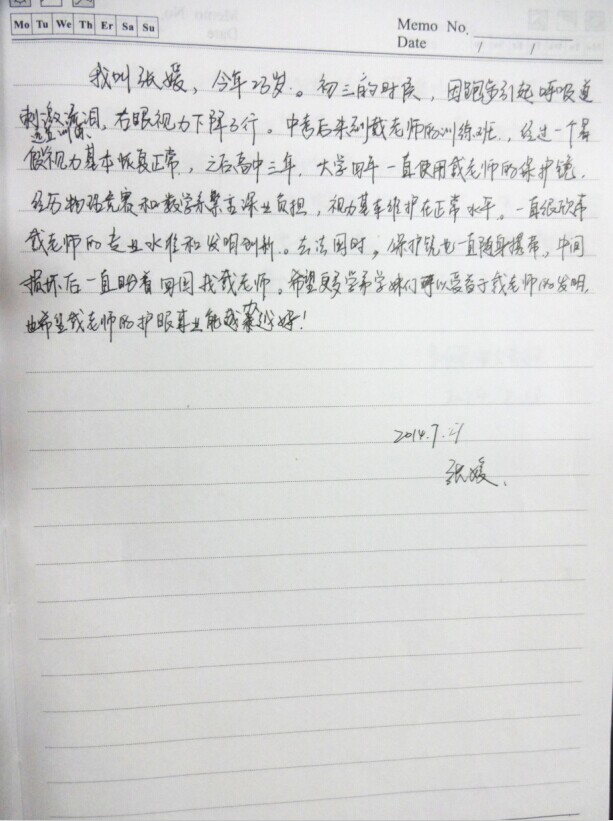 Mo Tu We Th Er Sa Su
Memo No.
Date / /
我叫张媛，今年23岁。初三的时候，因跑步引起呼吸道
刺激流泪，右眼视力下降3行。中考后来到戴老师的训练班，经过一个暑
假视力基本恢复正常，之后高中三年，大学四年一直使用戴老师的保护镜，
经历物理竞赛和数学系繁重课业负担，视力基本维护在正常水平。一直很欣赏
戴老师的专业水准和发明创新。去法国时，保护镜也一直随身携带，中间
损坏后一直盼着回国找戴老师。希望更多学弟学妹们可以受益于戴老师的发明，
也希望戴老师的护眼事业能越来越好！
2014.7.21
张媛.